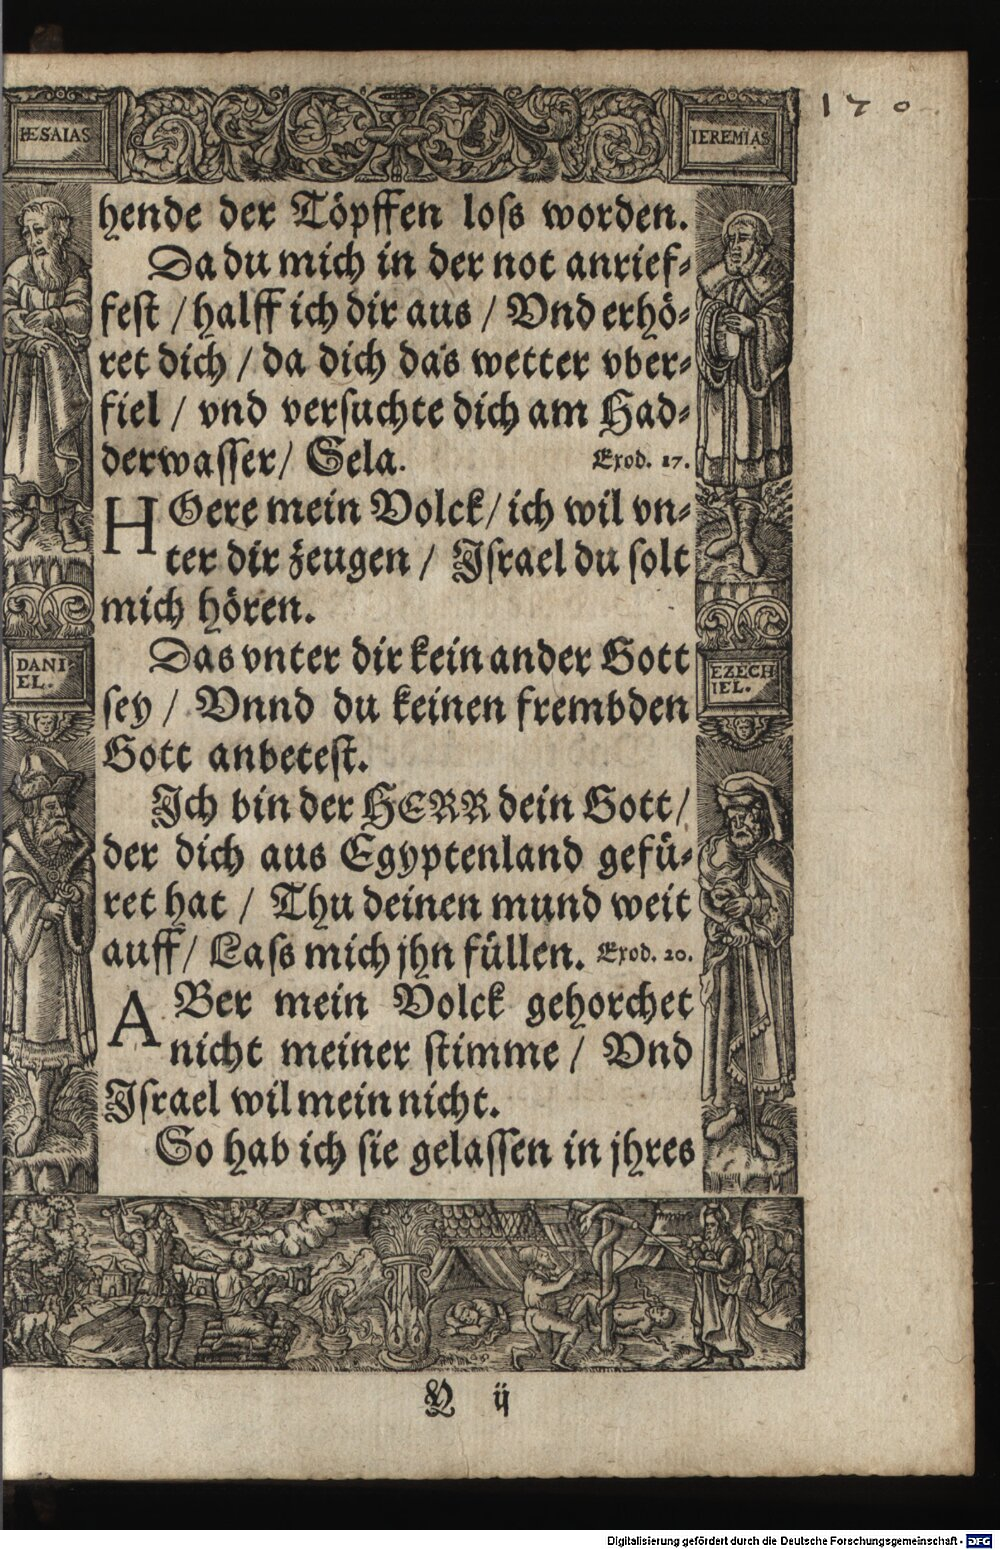 170
IESAIAS
IEREMIAS
hende der Töpffen loſs worden.
Da du mich in der not anrief⸗
feſt / halff ich dir aus / Vnd erhö⸗
ret dich / da dich das wetter vber⸗
fiel / vnd verſuchte dich am Had⸗
derwaſſer / Sela. Exod. 17.
HOere mein Volck / ich wil vn⸗
ter dir zeugen / Iſrael du ſolt
mich hören.
Das vnter dir kein ander Gott
ſey / Vnnd du keinen frembden
Gott anbeteſt.
Ich bin der HERR dein Gott /
der dich aus Egyptenland gefü⸗
ret hat / Thu deinen mund weit
auff / Laſs mich jhn füllen. Exod. 20.
ABer mein Volck gehorchet
nicht meiner ſtimme / Vnd
Iſrael wil mein nicht.
So hab ich ſie gelaſſen in jhres
DANI⸗
EL.
EZECH
IEL.
Y ij
Digitalisierung gefördert durch die Deutsche Forschungsgemeinschaft - DFG